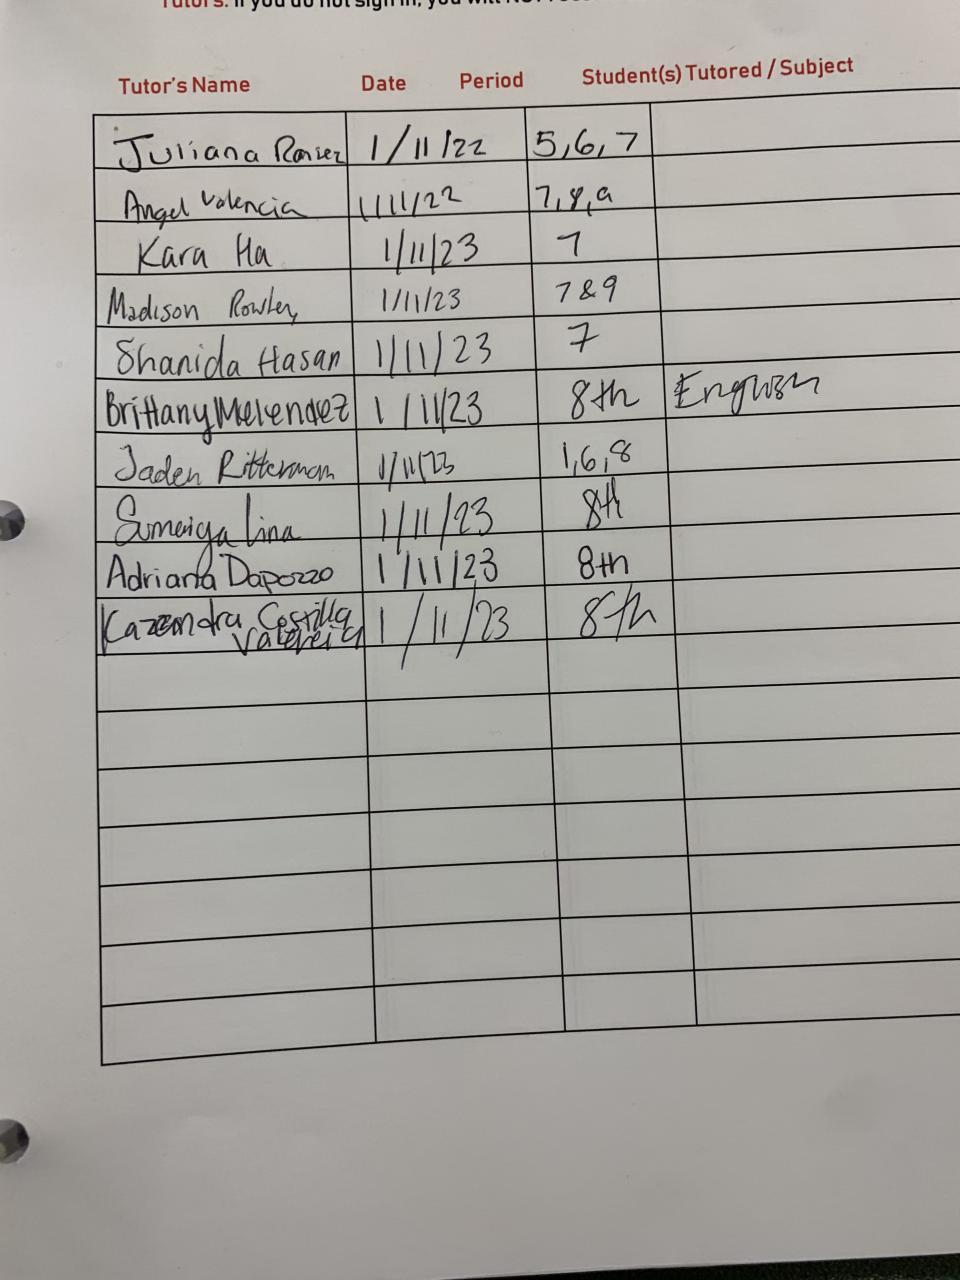 Tutors: If you do not sign in, you will NOT
Tutor's Name Date Period Student(s) Tutored / Subject
Juliana 1/11/22 5,6,7
Angel Valencia 1/11/22 7,8,9
Kara Ha 1/11/23 7
Madison Rowley 1/11/23 7 & 9
Shanida Hasan 1/11/23 7
Brittany Melendez 1/11/23 8th English
Jaden Ritterman 1/11/23 1,6,8
Sumaiya Lina 1/11/23 8th
Adriana Dapozzo 1/11/23 8th
Kazendra Costilla 1/11/23 8th
Valencia